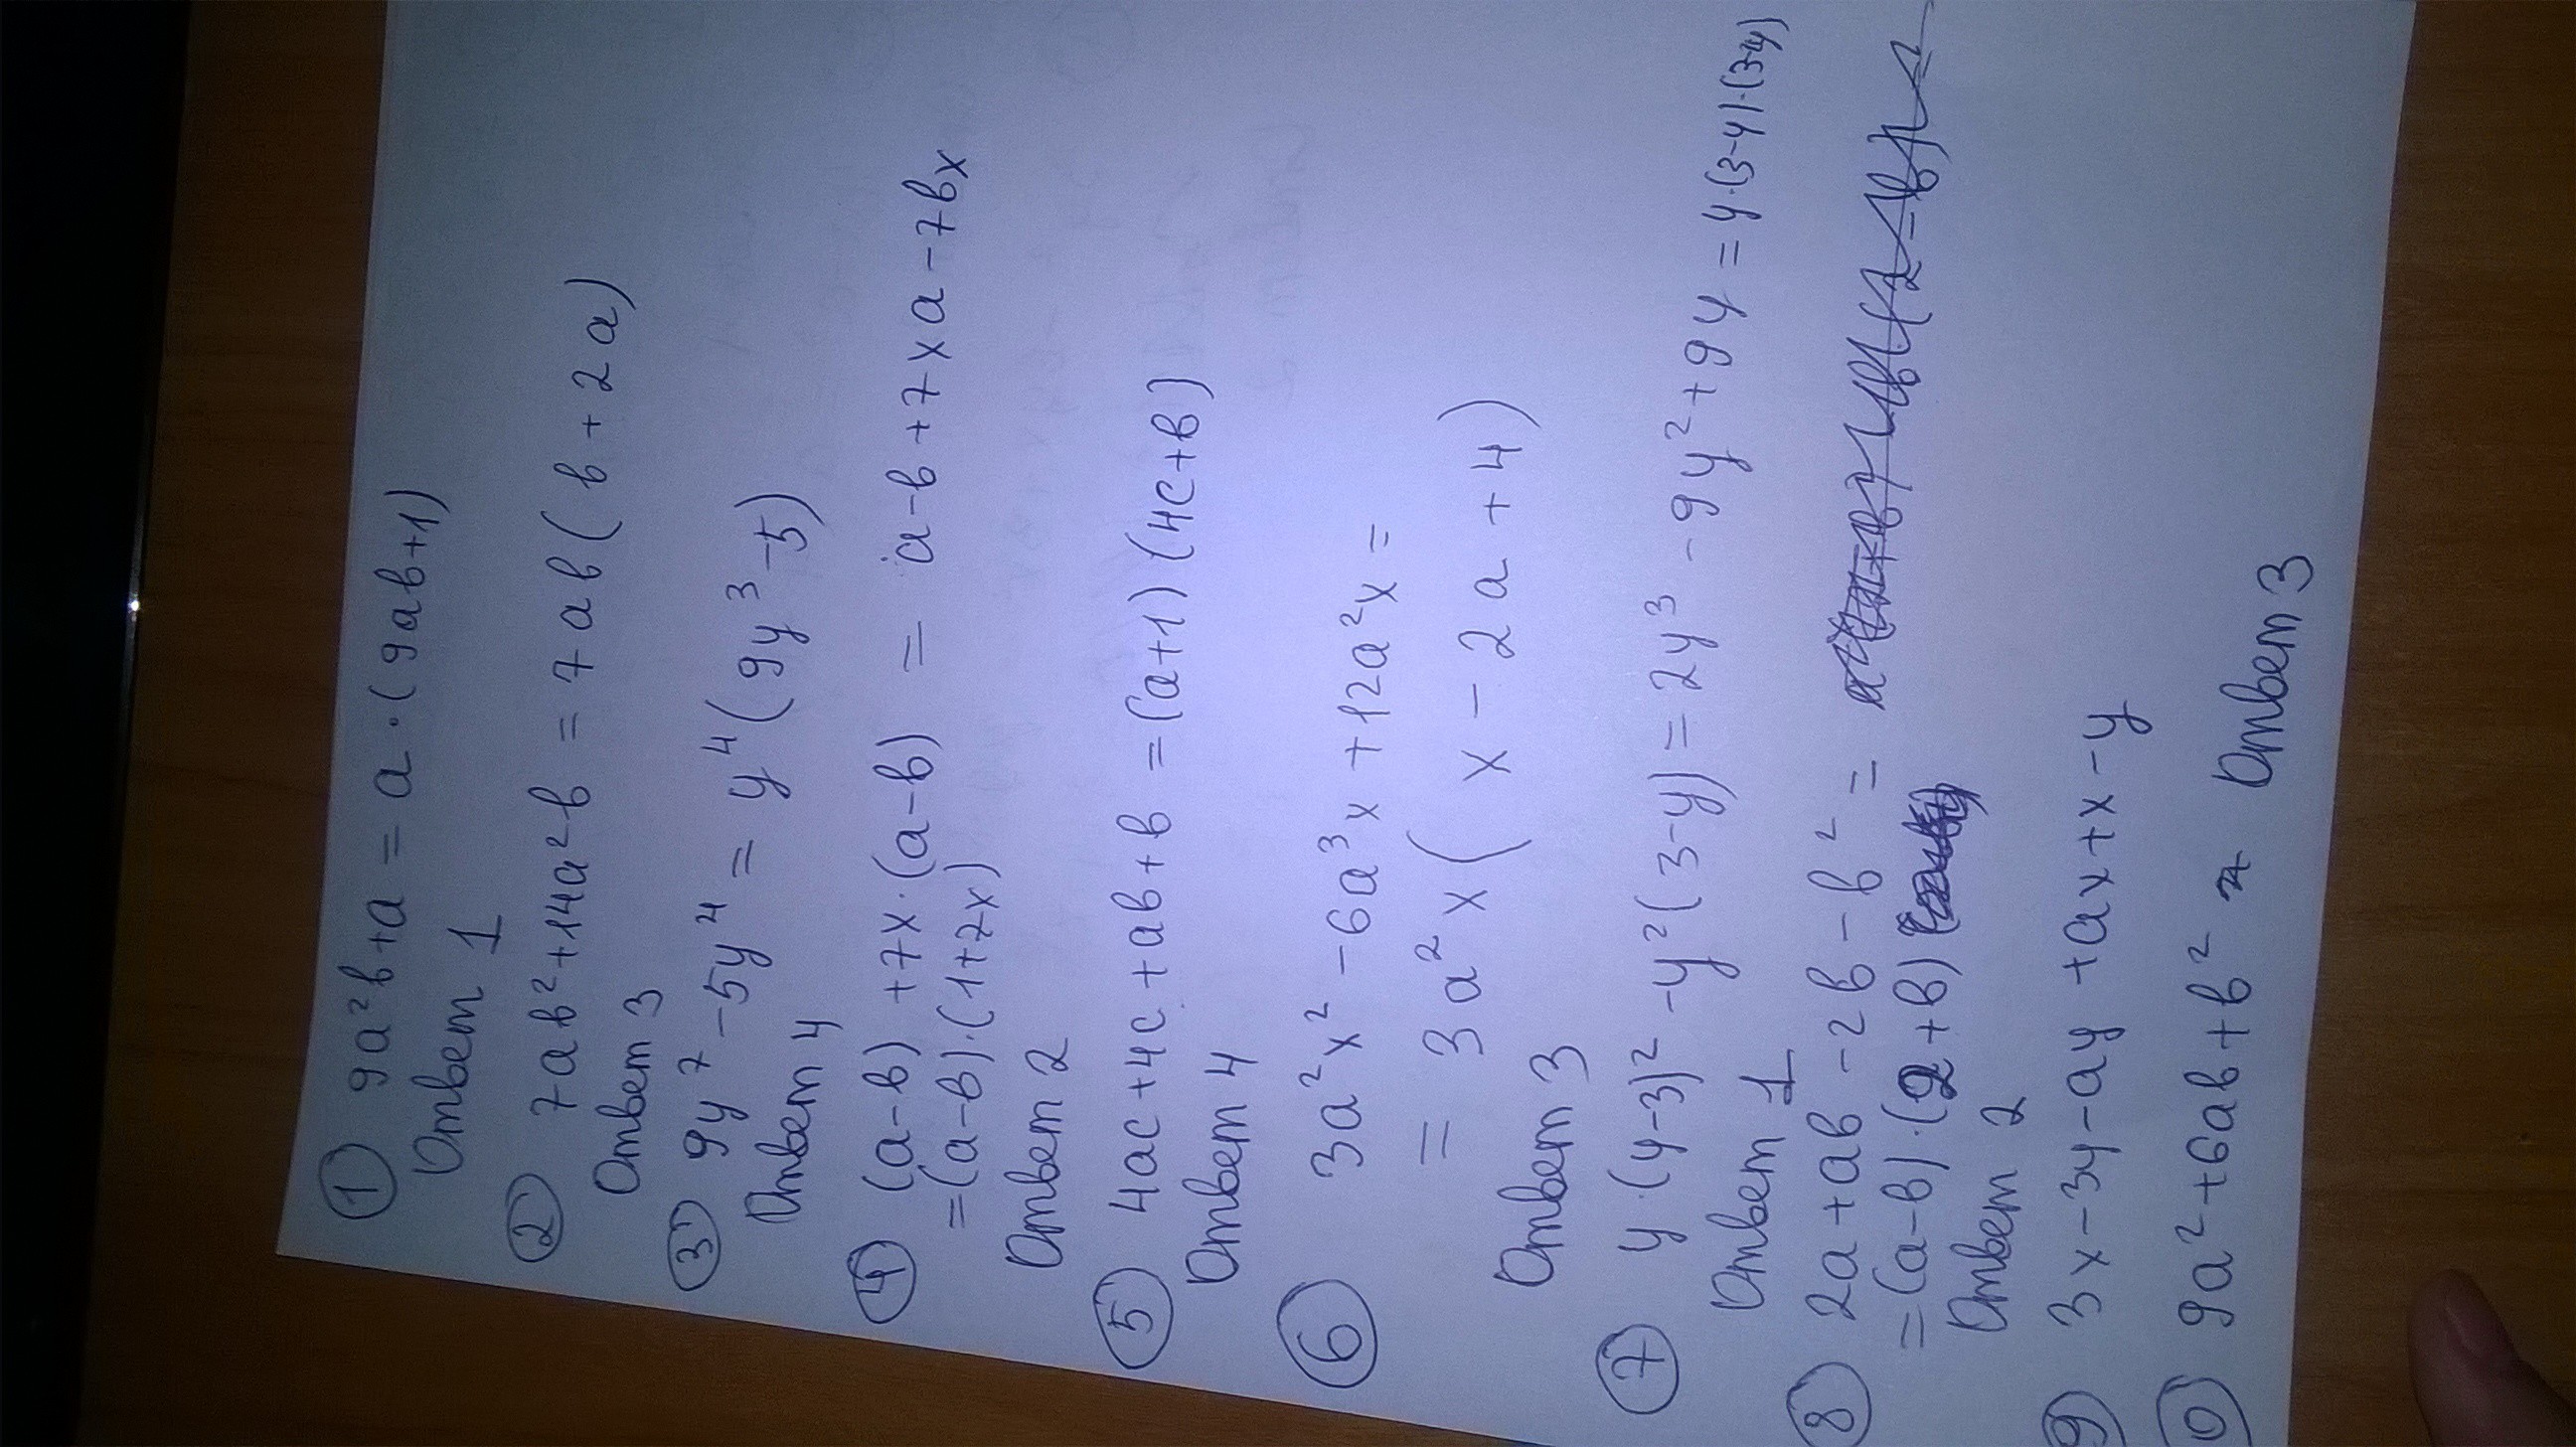 ① 9a²b+a = a·(9ab+1)
Ответ 1
② 7ab²+14a²b = 7ab(b+2a)
Ответ 3
③ 9y⁷-5y⁴ = y⁴(9y³-5)
Ответ 4
④ (a-b)+7x·(a-b) = a-b+7xa-7bx
=(a-b)·(1+7x)
Ответ 2
⑤ 4ac+4c+ab+b =(a+1)(4c+b)
Ответ 4
⑥ 3a²x²-6a³x+12a²x=
= 3a²x(x-2a+4)
Ответ 3
⑦ y·(y-3)²-y²(3-y)=2y³-9y²+9y=y·(3-y)·(3-2y)
Ответ 1
⑧ 2a+ab-2b-b²=
=(a-b)·(2+b)
Ответ 2
⑨ 3x-3y-ay+ax+x-y
0 9a²+6ab+b² Ответ 3